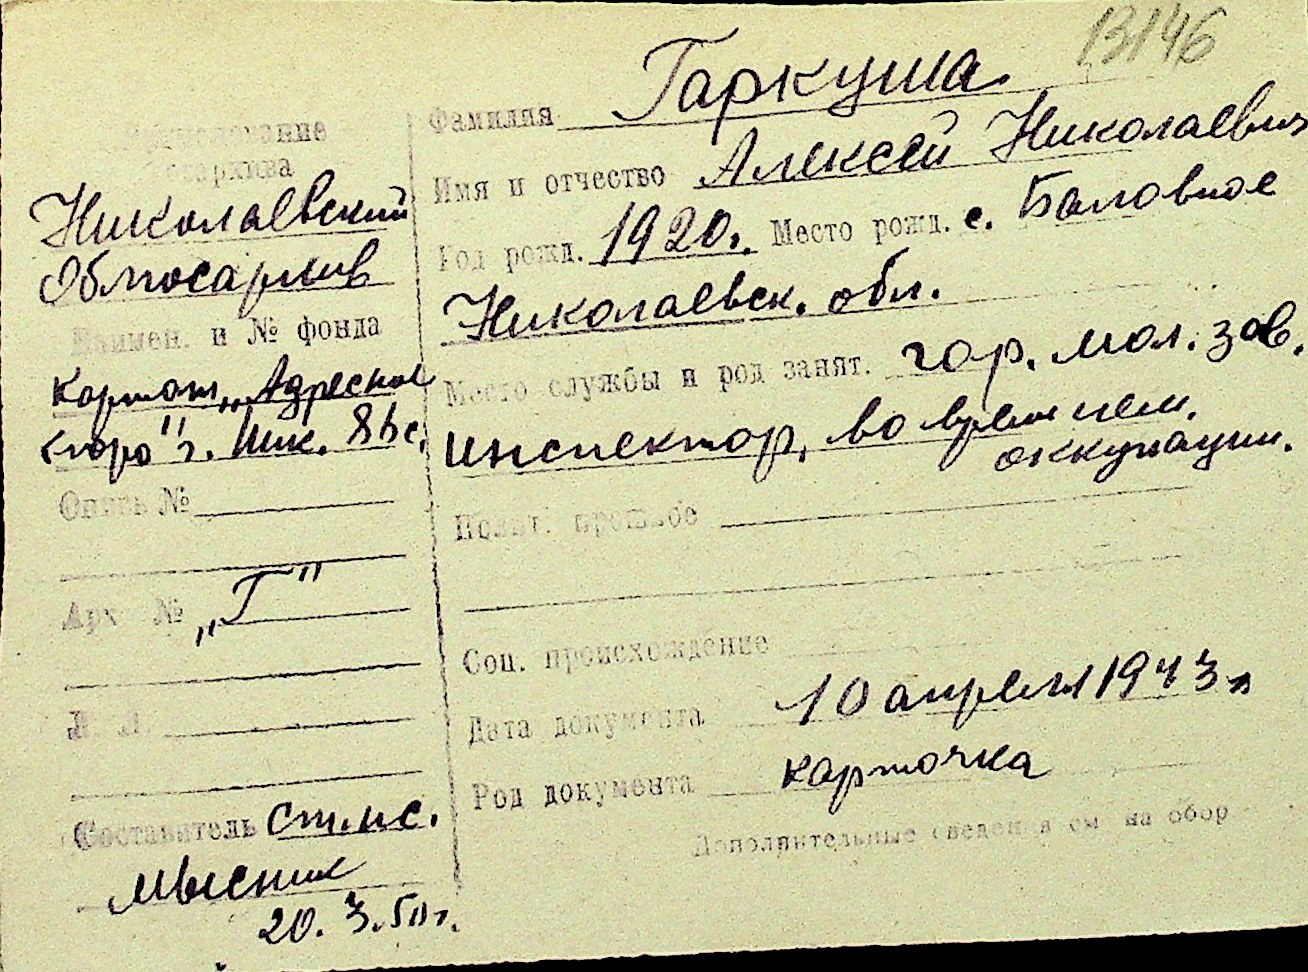 13146
Фамилия Гаркуша
Имя и отчество Алексей Николаевич
Год рожд. 1920г. Место рожд. с. Баловное
Николаевск. обл.
Место службы и род занят. гор. мол. зав.
инспектор, во время нем.
оккупации.
Полит. прошлое
Соц. происхождение
Дата документа 10 апреля 1943 г
Род документа карточка
Дополнительные сведения см на обор
Наименование
госархива
Николаевский
Облгосархив
Наимен. и № фонда
картот. „Адресное
бюро" г. Ник.
Опись №
Арх №
„Г"
Л. Л.
Составитель ст. нс.
Мысник
20. 3. 50 г.